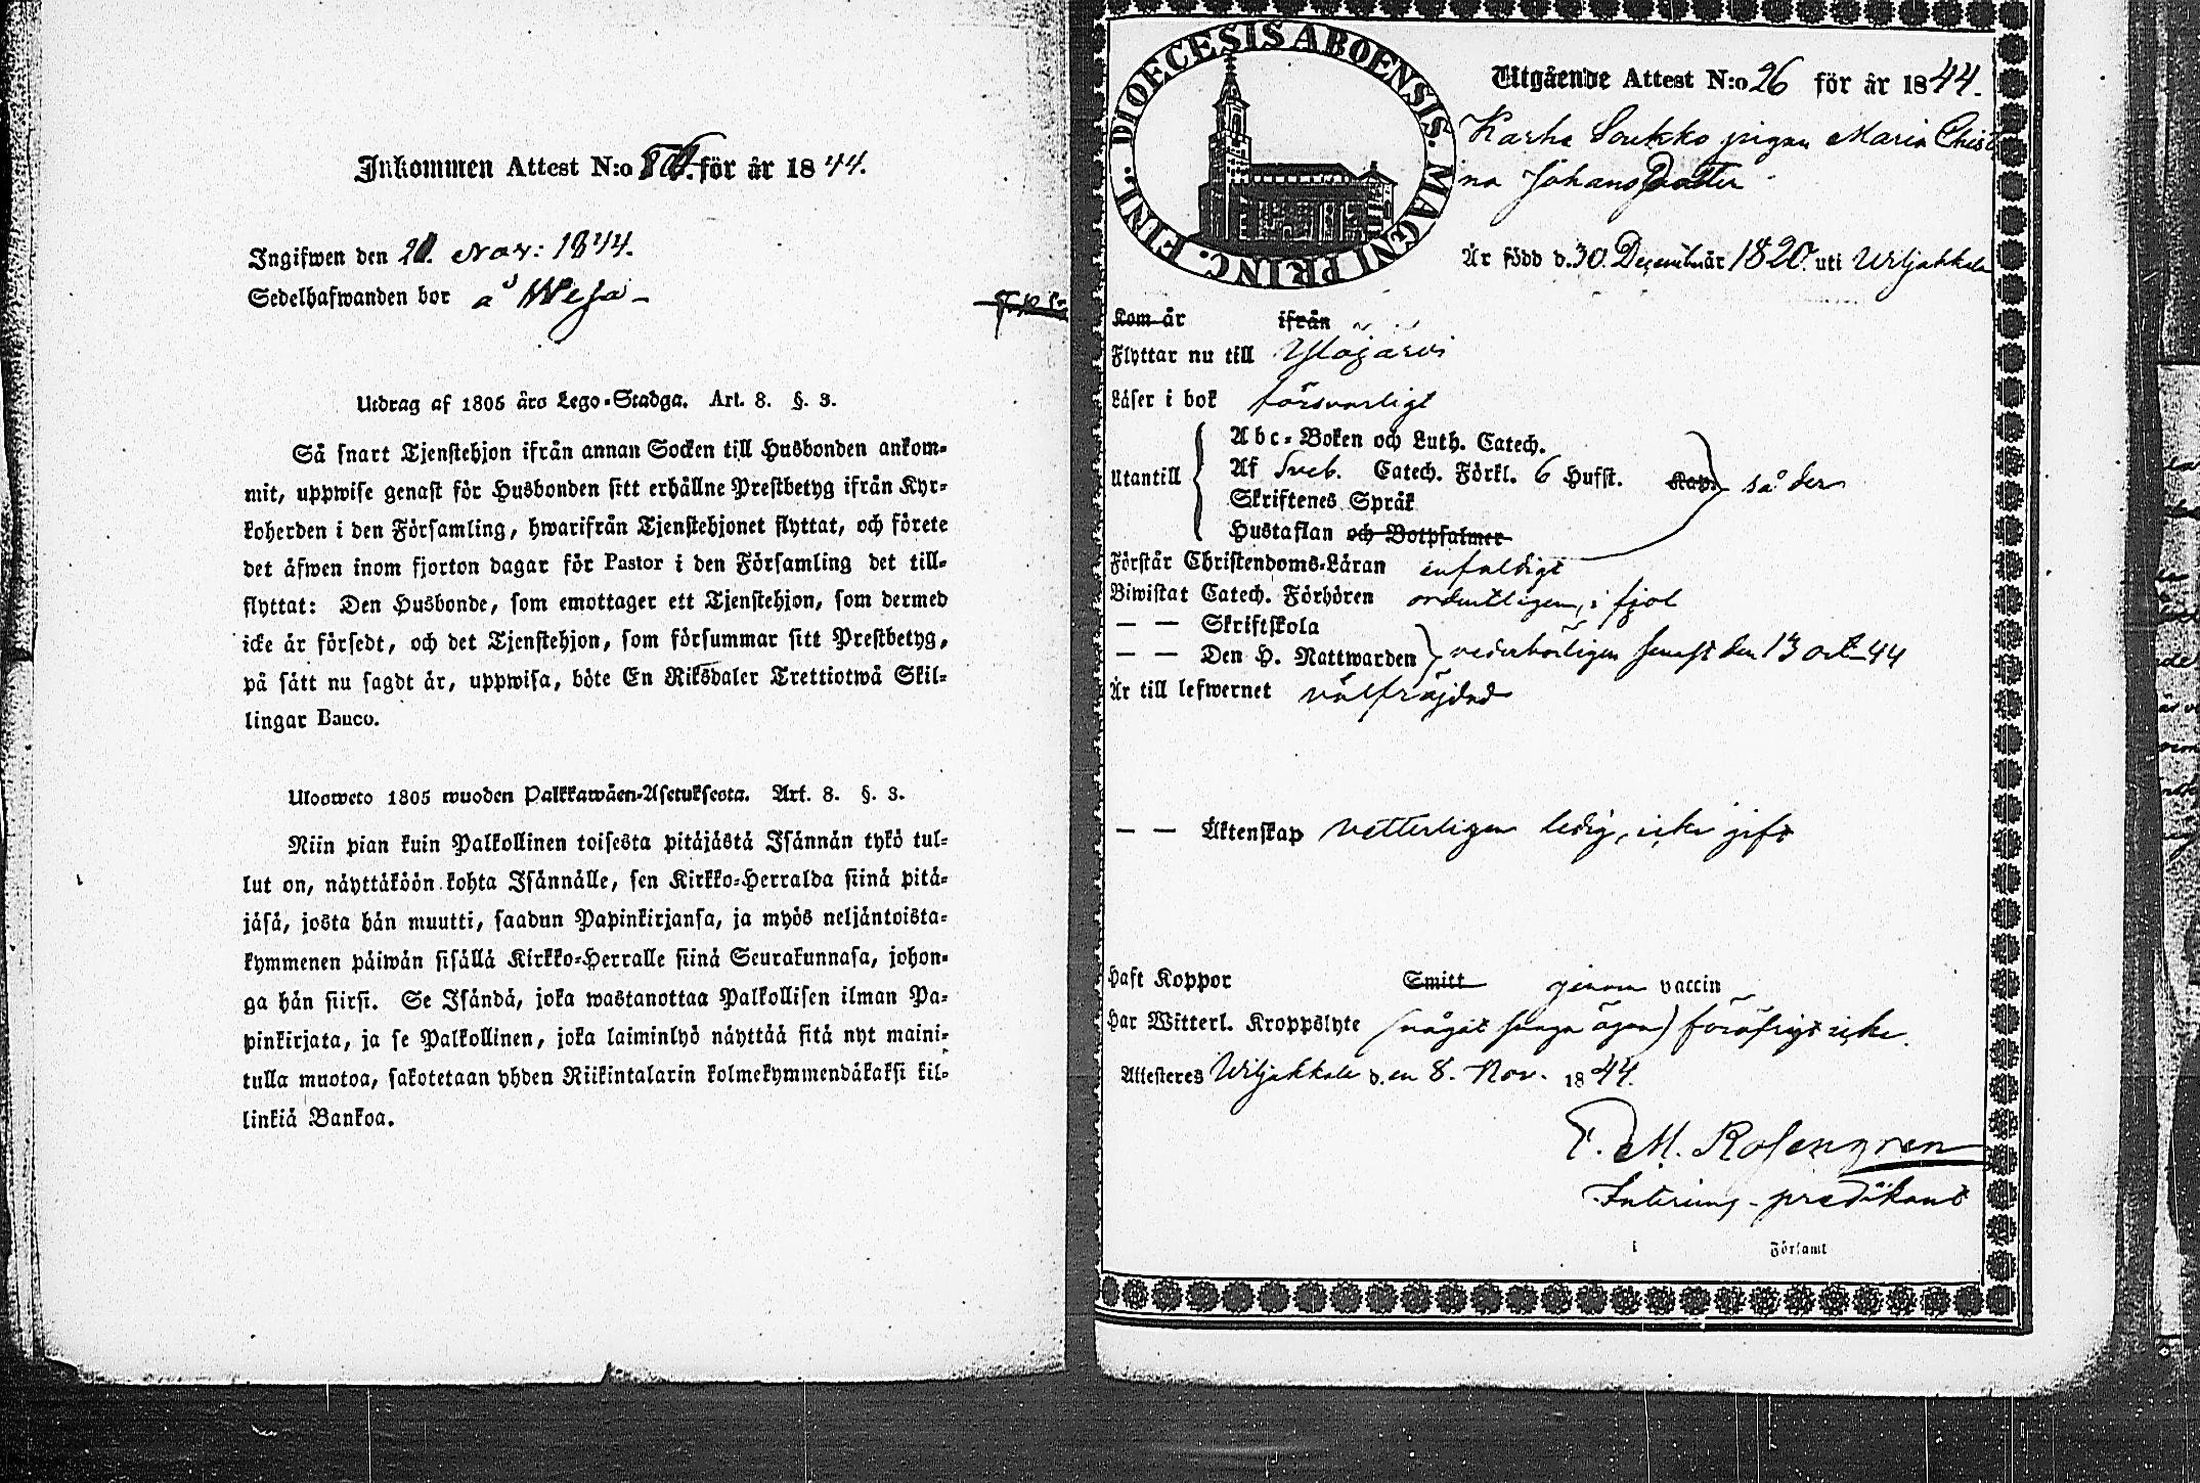 Inkommen Attest N:o för år 1844.
Ingifwen den 21. Nov: 1844.
Sedelhafwanden bor å Weja
Utdrag af 1805 års Lego-Stadga. Art. 8. §. 3.
Så snart Tjenstehjon ifrån annan Socken till Husbonden ankom-
mit, uppwise genast för Husbonden sitt erhållne Prestbetyg ifrån Kyr-
koherden i den Församling, hwarifrån Tjenstehjonet flyttat, och förete
det äfwen inom fjorton dagar för Pastor i den Församling det till-
flyttat: Den Husbonde, som emottager ett Tjenstehjon, som dermed
icke är försedt, och det Tjenstehjon, som försummar sitt Prestbetyg,
på sätt nu sagdt är, uppwisa, böte En Riksdaler Trettiotwå Skil-
lingar Banco.
Ulosweto 1805 wuoden Palkkawäen-Asetuksesta. Art. 8. §. 3.
Niin pian kuin Palkollinen toisesta pitäjästä Isännän tykö tul-
lut on, näyttäköön kohta Isännälle, sen Kirkko-Herralda siinä pitä-
jäsä, josta hän muutti, saadun Papinkirjansa, ja myös neljäntoista-
kymmenen päiwän sisällä Kirkko-Herralle siinä Seurakunnasa, johon-
ga hän siirsi. Se Isändä, joka wastanottaa Palkollisen ilman Pa-
pinkirjata, ja se Palkollinen, joka laiminlyö näyttää sitä nyt maini-
tulla muotoa, sakotetaan yhden Riikintalarin kolmekymmendäkaksi kil-
linkiä Bankoa.
DIOECESIS ABOENSIS. MAGNI PRINC. FINL.
Utgående Attest N:o 26 för år 1844.
Karhe Soukko pigan Maria Christ
ina Johansdotter
Är född d. 30. December 1820. uti Wiljakkala
Kom år ifrån
Flyttar nu till Ylöjärvi
Läser i bok försvarligt
Utantill
Abc-Boken och Luth. Catech.
Af Sveb. Catech. Förkl. 6 Hufst. Kap. så der
Skriftenes Språk
Hustaflan och Botpsalmer
Förstår Christendoms-Läran enfaldigt
Biwistat Catech. Förhören ordentligen, i fjol
— — Skriftskola
— — Den H. Nattwarden vederbörligen senast den 13 oct 44
Är till lefwernet välfräjdad
— — Äktenskap vetterligen ledig, icke gift
Haft Koppor Smitt genom vaccin
Har Witterl. Kroppslyte (något svaga ögon) föröfrigt icke.
Attesteres Wiljakkala d. en 8. Nov. 1844.
F. M. Rosengren
Interims-predikant
i Församl